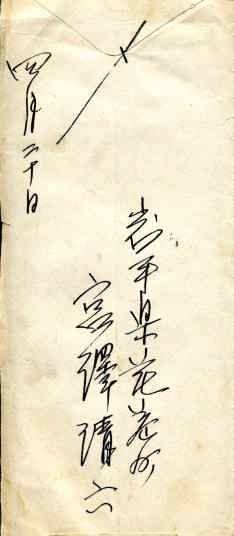 岩手県花巻町
宮澤清六
四月二十日